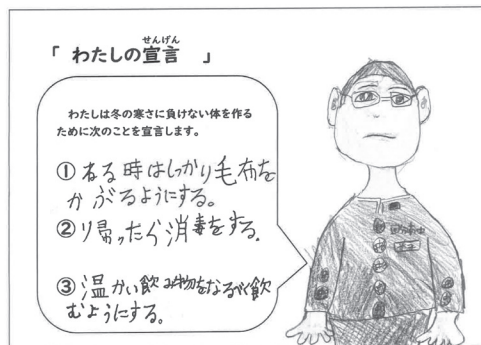 「 わたしの宣言 」
せんげん
わたしは冬の寒さに負けない体を作る
ために次のことを宣言します。
① ねる時はしっかり毛布を
かぶるようにする。
② 帰ったら消毒をする.
③ 温かい飲み物をなるべく飲
むようにする。